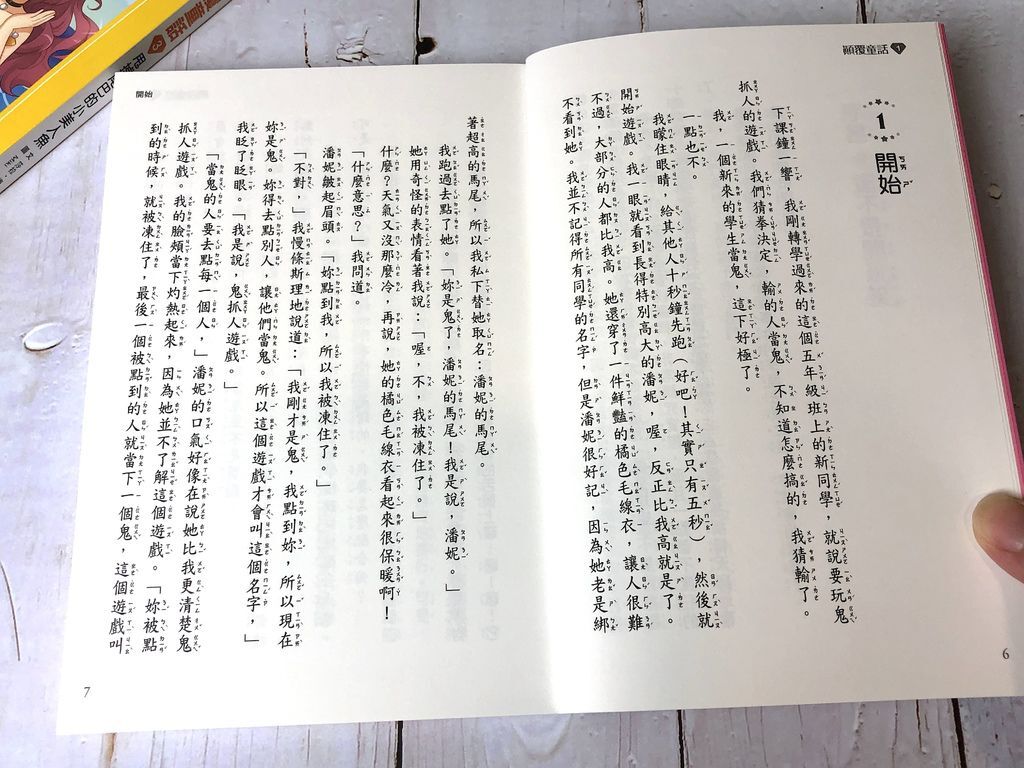 顛覆童話 1
1 開始
下課鐘一響，我剛轉學過來的這個五年級班上的新同學，就說要玩鬼
抓人的遊戲。我們猜拳決定，輸的人當鬼，不知道怎麼搞的，我猜輸了。
我，一個新來的學生當鬼，這下好極了。
一點也不。
我矇住眼睛，給其他人十秒鐘先跑（好吧！其實只有五秒），然後就
開始遊戲。我一眼就看到長得特別高大的潘妮，喔，反正比我高就是了。
不過，大部分的人都比我高。她還穿了一件鮮豔的橘色毛線衣，讓人很難
不看到她。我並不記得所有同學的名字，但是潘妮很好記，因為她老是綁
6
開始
著超高的馬尾，所以我私下替她取名：潘妮的馬尾。
我跑過去點了她。「妳是鬼了，潘妮的馬尾！我是說，潘妮。」
她用奇怪的表情看著我說：「喔，不，我被凍住了。」
什麼？天氣又沒那麼冷，再說，她的橘色毛線衣看起來很保暖啊！
「什麼意思？」我問道。
潘妮皺起眉頭。「妳點到我，所以我被凍住了。」
「不對，」我慢條斯理地說道：「我剛才是鬼，我點到妳，所以現在
妳是鬼。妳得去點別人，讓他們當鬼。所以這個遊戲才會叫這個名字，」
我眨了眨眼。「我是說，鬼抓人遊戲。」
「當鬼的人要去點每一個人，」潘妮的口氣好像在說她比我更清楚鬼
抓人遊戲。我的臉頰當下灼熱起來，因為她並不了解這個遊戲。「妳被點
到的時候，就被凍住了，最後一個被點到的人就當下一個鬼，這個遊戲叫
7